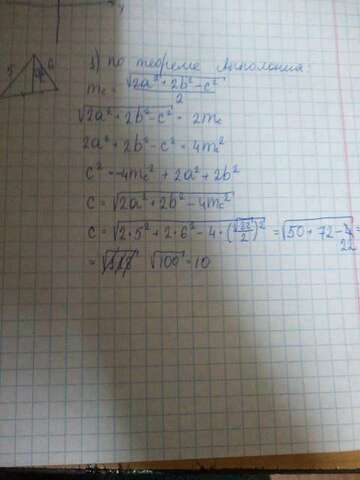 5 6
1) по теореме Апполония:
m_c = √(2a² + 2b² - c²) / 2
√(2a² + 2b² - c²) = 2m_c
2a² + 2b² - c² = 4m_c²
c² = -4m_c² + 2a² + 2b²
c = √(2a² + 2b² - 4m_c²)
c = √(2·5² + 2·6² - 4·(√22/2)²) = √(50 + 72 - 22) =
= √100 = 10